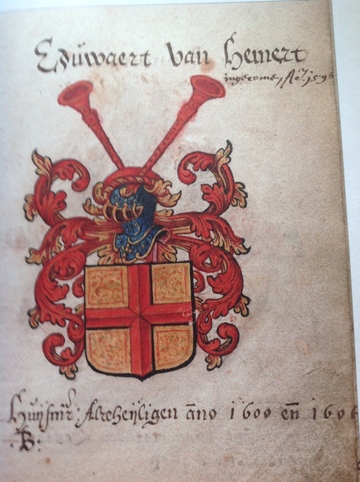 Eduwaert van Hemert
ingecomen Aº. 1596
Huijsmr: Alreheijligen año 1600 en̄ 1606
.B: